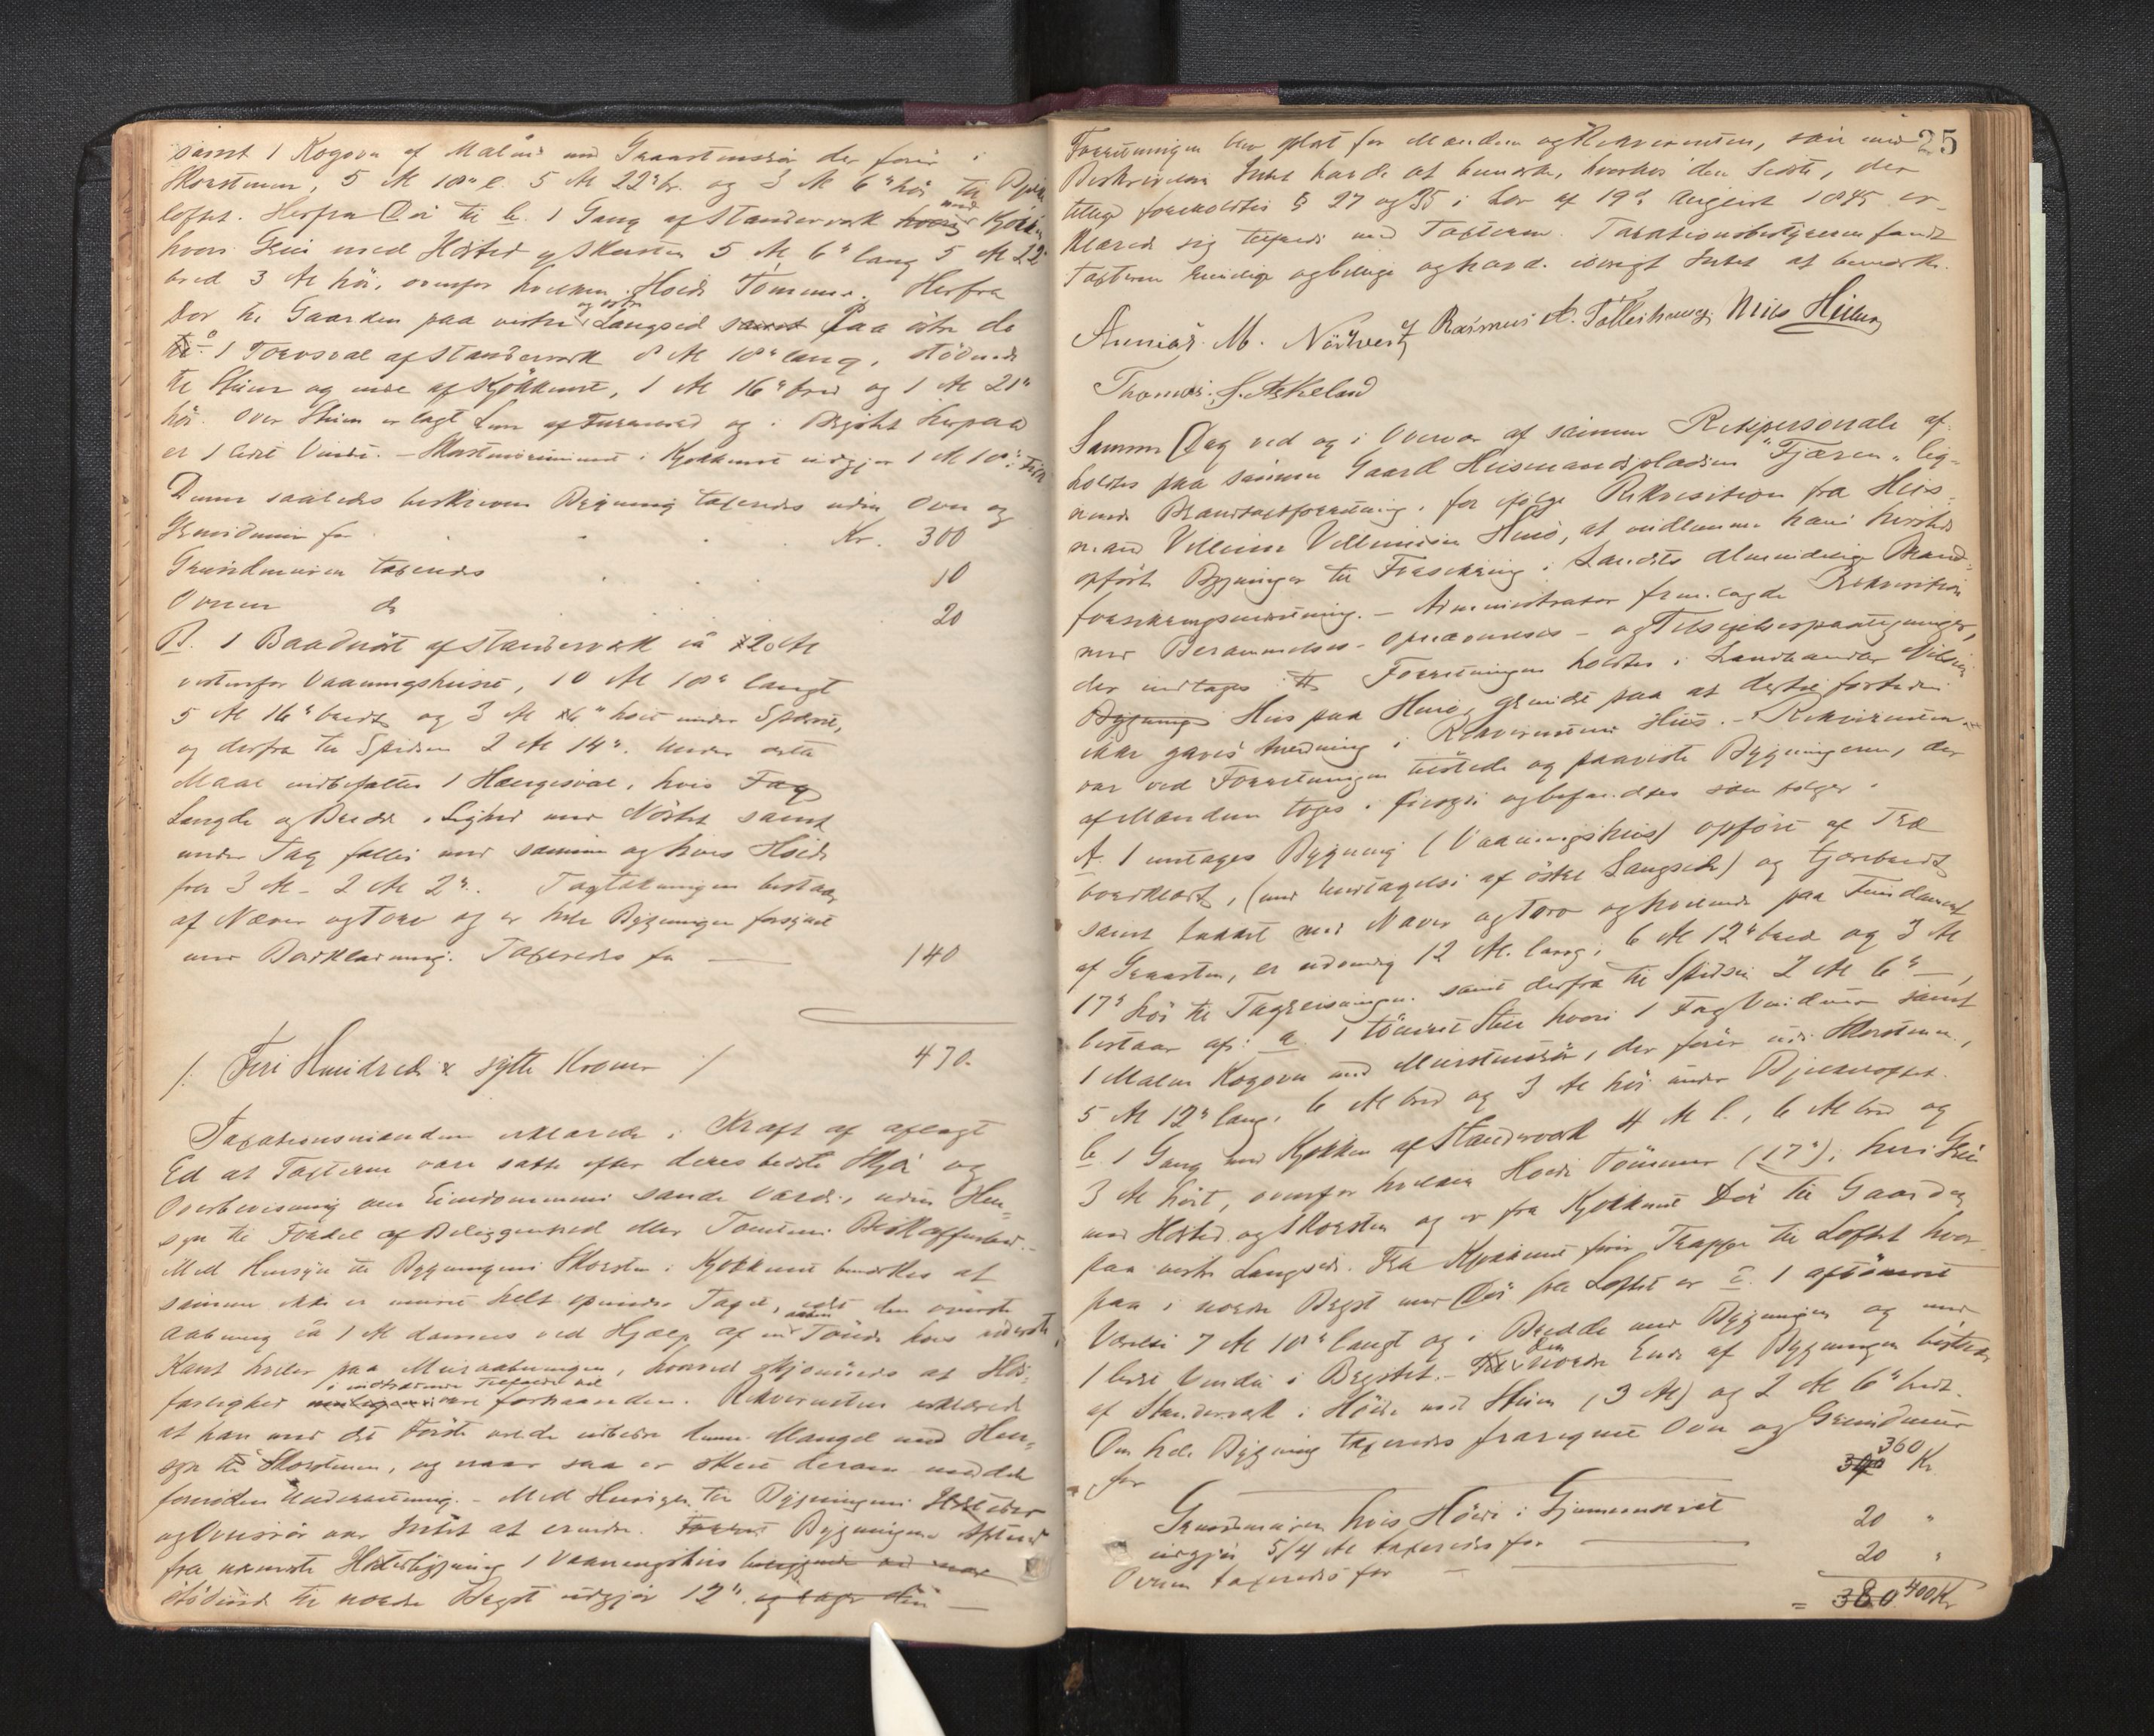 samt 1 Kogovn af Malm med Graastensrør der fører i
Skorstenen, 5 M 18" l. 5 M 22" br. og 3 M 6" høi til Bjelke
loftet. Herfra Dør til b. 1 Gang af Standerværk hvori med Kjøkken
hvori Grue med Ildsted og Skorsten 5 M 6" lang 5 M 22"
bred 3 M høi, ovenfor hvilken Høide Tømmer. Herfra
Dør til Gaarden paa vestre og østre Langside samt paa østre do
til c. 1 Torvsval af Standerværk 8 M 18" lang, stødende
til Stuen og endel af Kjøkkenet, 1 M 16" bred og 1 M 21"
høi. Over Stuen er lagt Lem af Furuved og i Brystet herpaa
er 1 lidet Vindu. – Skorstensrummet i Kjøkkenet udgjør 1 M 10"
Denne saaledes beskrevne Bygning taxeredes uden Ovn og
Grundmur for . . . Kr. 300
Grundmuren taxeredes . . 10
Ovnen do . . 20
B. 1 Baadnøst af Standerværk ca 20 M
vestenfor Vaaningshuset, 10 M 18" langt
5 M 16" bredt og 3 M 6" høit under Sperre,
og derfra til Spidsen 2 M 14". Under dette
Maal indbefattes 1 Hængesval, hvis Tag
Længde og Bredde i Lighed med Nøstet samt
under Tag falder med samme og hvis Høide
fra 3 M – 2 M 2". Tagtækningen bestaar
af Næver og Torv og er hele Bygningen forsynet
med Bordklædning. Taxeredes for — 140
/: Fire Hundrede & sytti Kroner :/ 470.
Taxationsmændene erklærede i Kraft af aflagt
Ed at Taxterne vare satte efter deres bedste Skjøn og
Overbevisning om Eiendommens sande Værdi, uden Hen-
syn til Fordel af Beliggenhed eller Tomtens Beskaffenhed. –
Med Hensyn til Bygningens Skorsten i Kjøkkenet bemærkes at
samme ikke er muret helt op under Taget, idet den øverste
Aabning ca 1 M dannes ved Hjælp af en aaben Tønde hvis nederste
Kant hviler paa Muraabningen, hvorved skjønnedes at Ild-
farlighed i indtrædende Tilfælde vil være forhaanden. Rekvirenten erklærede
at han med det Første vilde udbedre denne Mangel med Hen-
syn til Skorstenen, og naar saa er skeet derom meddele
fornøden Underretning. – Med Hensyn til Bygningens Ildsteder
og Ovnsrør var Intet at erindre. Bygningens Afstand
fra nærmeste Ildstedsbygning 1 Vaaningshus
stødende til nordre Bryst udgjør 12" og
25
Forretningen blev oplæst for Mændene og Rekvirenten, som mod
Beskrivelsen Intet havde at bemærke, hvorhos den Sidste, der
tillige foreholdtes § 27 og 35 i Lov af 19de August 1845 er-
klærede sig tilfreds med Taxterne. Taxationsbestyreren fandt
Taxterne rimelige og billige og havde iøvrigt Intet at bemærke.
M. Rasmus A. Nils
Thomas S. Askeland
Samme Dag ved og i Overvær af samme Retspersonale af-
holdtes paa samme Gaards Husmandspladsen "Fjæren" lig-
nende Brandtaxtforretning, ifølge Rekvisition fra Hus-
mand Villum Villumsen Huus, at indlemme hans hersteds
opførte Bygninger til Forsikring i Landets almindelige Brand-
forsikringsindretning. – Administrator fremlagde Rekvisition
med Berammelses- Opnævnelses- og Tilsigelsespaategninger,
der indtages: Forretningen holdtes i Landhandler Nilsens
Hus paa Huus, grundet paa at dertil fortiden
ikke gaves Anledning i Rekvirentens Hus. – Rekvirenten
var ved Forretningen tilstede og paaviste Bygningerne, der
af Mændene toges i Øiesyn og befandtes som følger:
A. 1 enetages Bygning (Vaaningshus) opført af Træ
bordklædt, (med Undtagelse af østre Langside) og tjærebredt
samt tækket med Næver og Torv og hvilende paa Fundament
af Graasten, er udvendig 12 M. lang, 6 M 12" bred og 3 M
17" høi til Tagreisningen samt derfra til Spidsen 2 M 6" —,
bestaar af: a. 1 tømret Stue hvori 1 Fag Vinduer samt
1 Malm Kogovn med Murstensrør, der fører ud i Skorstenen,
5 M 12" lang, 6 M bred og 3 M høi under Bjelkeloftet.
b. 1 Gang med Kjøkken af Standerværk 4 M l., 6 M bred og
3 M høit, ovenfor hvilken Høide Tømmer (17"); heri Grue
med Ildsted og Skorsten og er fra Kjøkkenet Dør til Gaarden
paa vestre Langside. Fra Kjøkkenet fører Trappe til Loftet hvor-
paa i nordre Bryst med Dør fra Loftet er c. 1 aftømret
Værelse 7 M 10" langt og i Bredde med Bygningen og med
1 lidet Vindu i Brystet. – den nordre Ende af Bygningen bestaar
af Standerværk i Høide med Stuen (3 M) og 2 M 6" bredt.
Den hele Bygning taxeredes fraregnet Ovn og Grundmur
for 340 360 Kr
Grundmuren hvis Høide i Gjennemsnit
udgjør 5/4 M taxeredes for — 20 "
Ovnen taxeredes for — 20 "
= 380 400 Kr